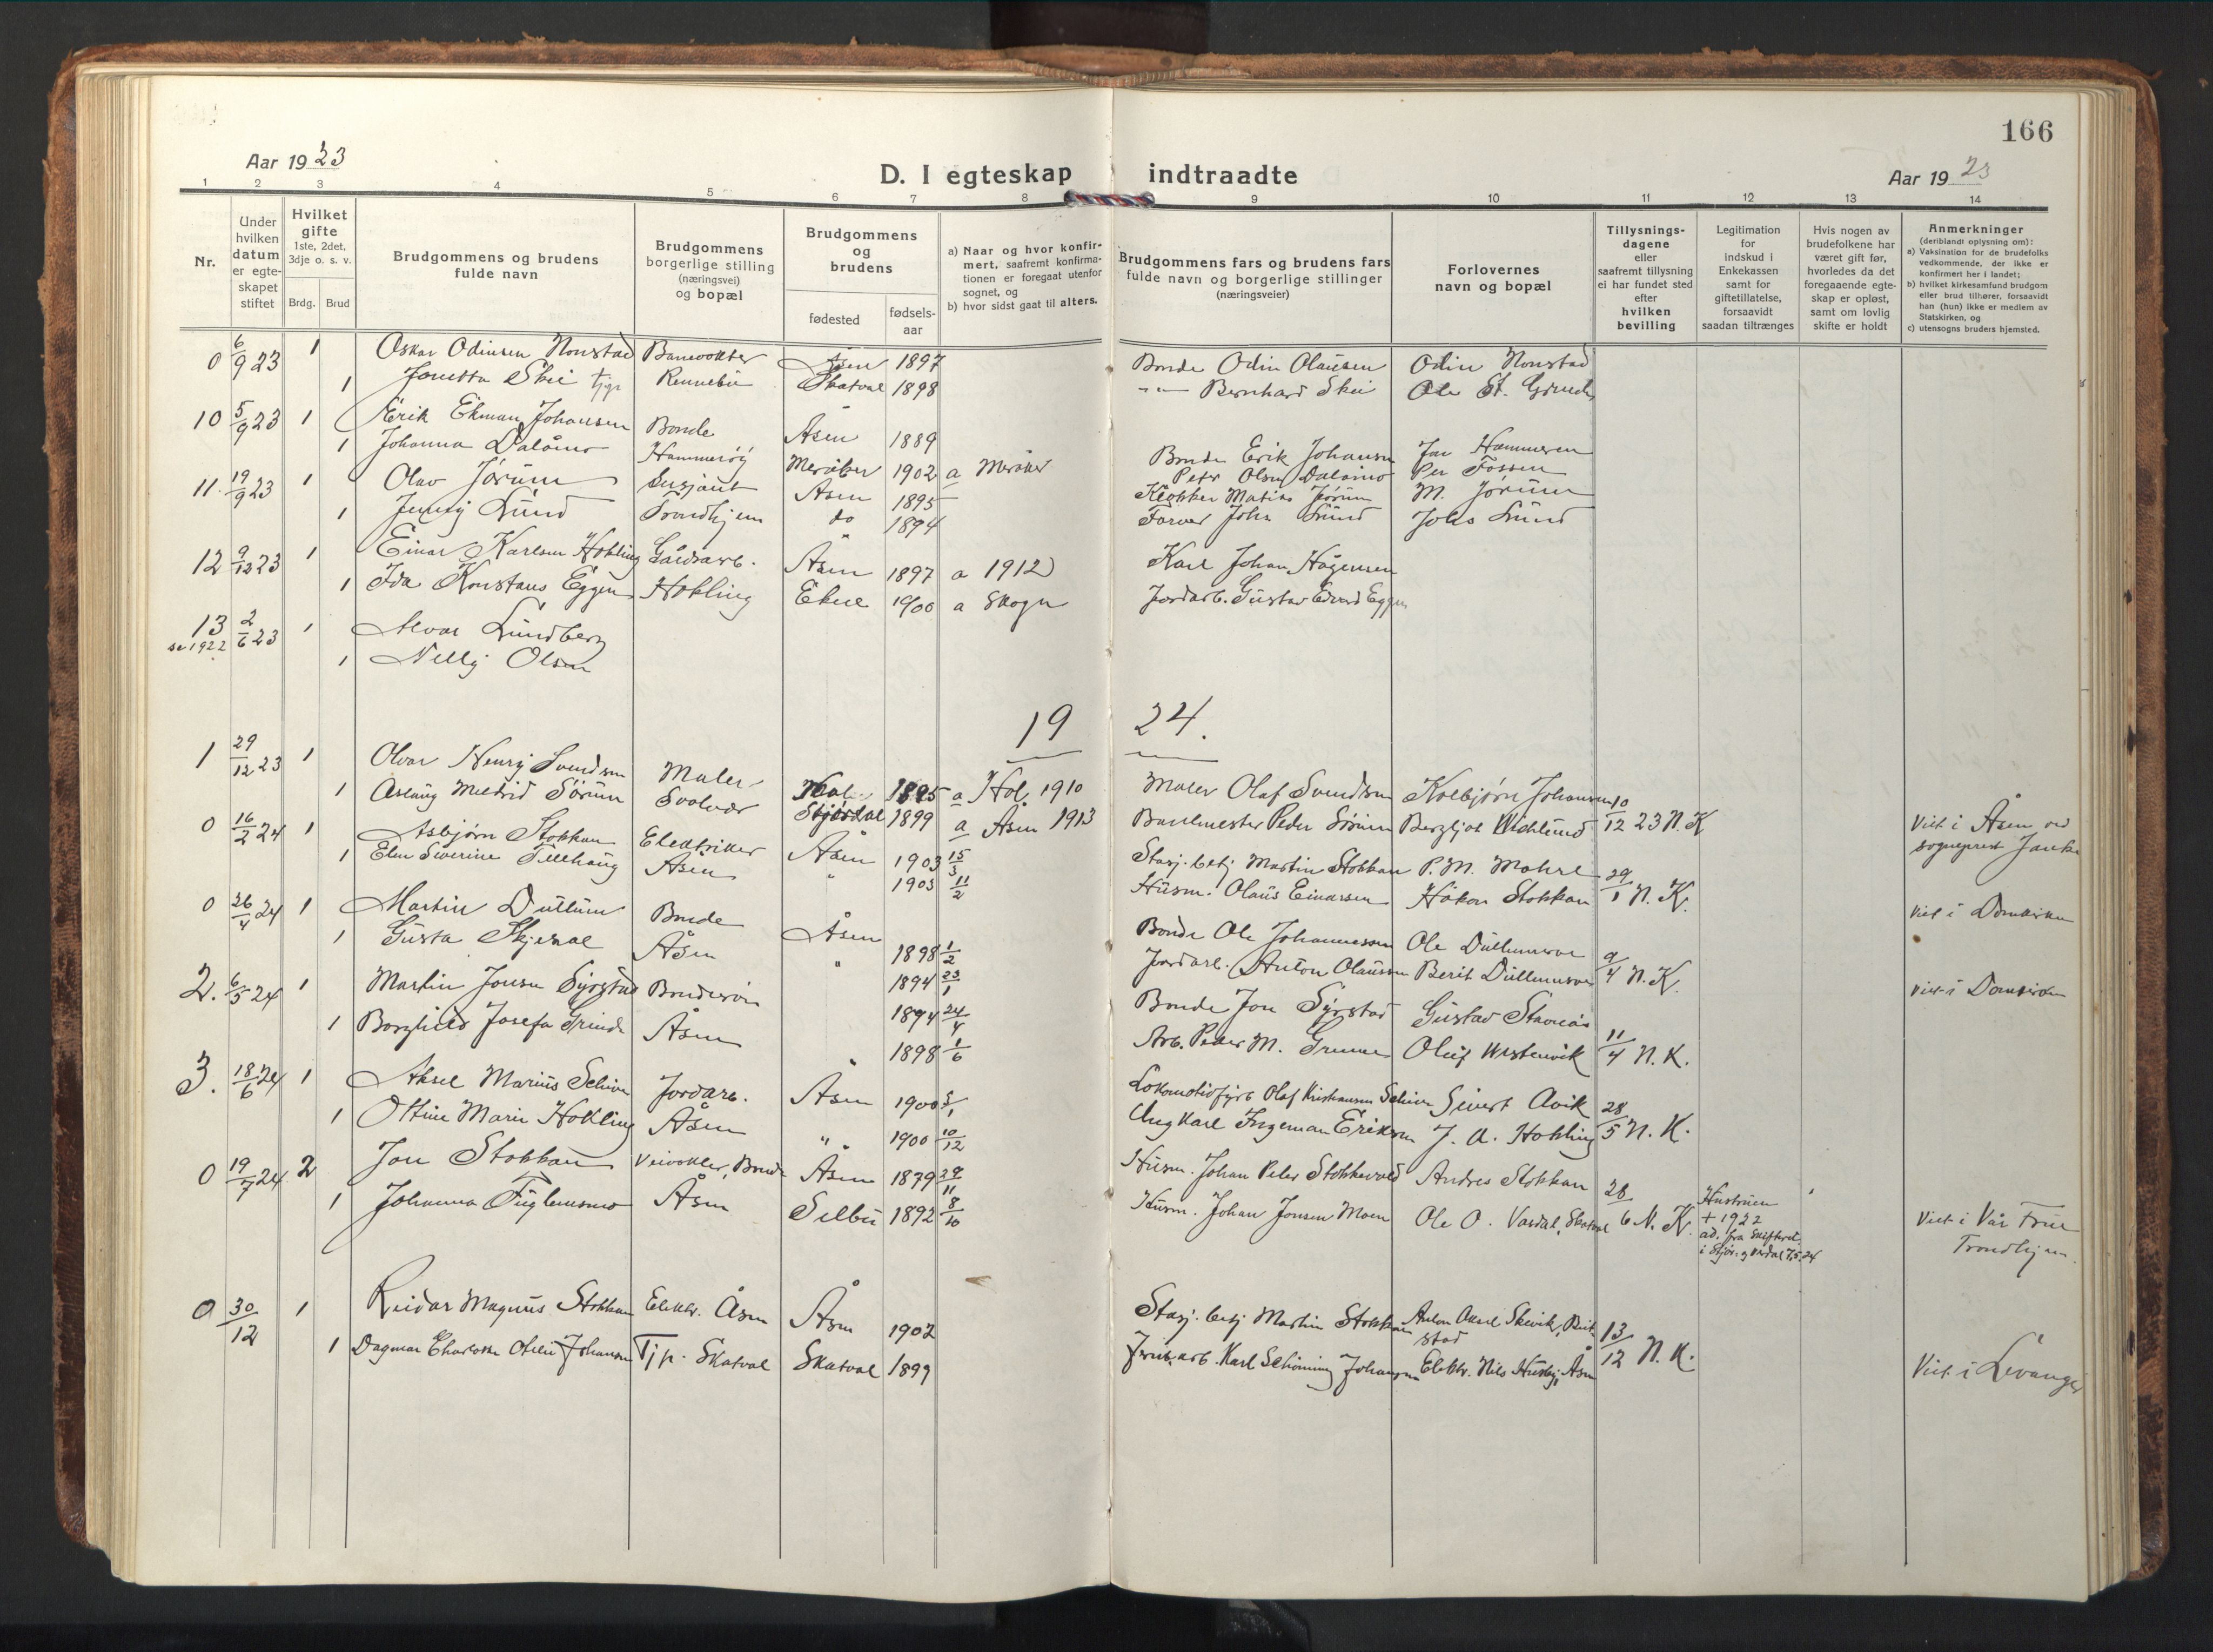 166
Aar 1923
D. I egteskap indtraadte
Aar 1923
1 2 3 4 5 6 7 8 9 10 11 12 13 14
Nr.
Under hvilken datum er egte-skapet stiftet
Hvilket gifte 1ste, 2det, 3dje o. s. v.
Brdg. Brud
Brudgommens og brudens fulde navn
Brudgommens borgerlige stilling (næringsvei) og bopæl
Brudgommens og brudens
fødested
fødsels-aar
a) Naar og hvor konfir-mert, saafremt konfirma-tionen er foregaat utenfor sognet, og
b) hvor sidst gaat til alters.
Brudgommens fars og brudens fars fulde navn og borgerlige stillinger (næringsveier)
Forlovernes navn og bopæl
Tillysnings-dagene eller saafremt tillysning ei har fundet sted efter hvilken bevilling
Legitimation for indskud i Enkekassen samt for giftetillatelse, forsaavidt saadan tiltrænges
Hvis nogen av brudefolkene har været gift før, hvorledes da det foregaaende egte-skap er opløst, samt om lovlig skifte er holdt
Anmerkninger (deriblandt oplysning om):
a) Vaksination for de brudefolks vedkommende, der ikke er konfirmert her i landet;
b) hvilket kirkesamfund brudgom eller brud tilhører, forsaavidt han (hun) ikke er medlem av Statskirken, og
c) utensogns bruders hjemsted.
0 6/9 23 1 Oskar Odinsen Nonstad Banevokter Åsen 1897 Bonde Odin Olausen Odin Nonstad
1 Skei Tjp Rennebu Skatval 1898 -"- Bernhard Skei Ole St.
10 5/9 23 1 Erik Ekman Johansen Bonde Åsen 1889 Bonde Erik Johansen Hammeren
1 Johanna Dalåmo Hammerøy Meråker 1902 a Meråker Peter Olsen Dalåmo Per Fossen
11 19/9 23 1 Olav Jørum Sersjant Åsen 1895 Matias Jørum M. Jørum
1 Jenny Lund Trondhjem do 1894 Farver John Lund Johs Lund
12 9/12 23 1 Einar Karlsen Hokling Gårdsarb. Åsen 1897 a 1912 Karl Johan Hågensen
1 Ida Konstanse Eggen Hokling Ekne 1900 a Skogn Jordarb. Gustav Edvard Eggen
13 2/6 23 1 Alvar Lundberg
se 1922
1 Nelly Olsen
19 24.
1 29/12 23 1 Olvar Henry Svendsen Maler Hol 1895 a Hol 1910 Maler Olaf Svendsen Kolbjørn Johansen 10/12 23 N. K.
1 Aslaug Meldrid Sørum Svolvær Stjørdal 1899 a Åsen 1913 Peder Sørum Bergljot Wichlund Viet i Åsen ved sogneprest
0 16/2 24 1 Asbjørn Stokkan Elektriker Åsen 1903 15/3 Stasj. betj Martin Stokkan P. M. 29/1 N. K.
1 Elen Siverine Tillhaug Åsen " 1903 11/2 Husm. Olaus Einarsen Håkon Stokkan Viet i Domkirken
0 26/4 24 1 Martin Dullum Bonde Åsen 1898 1/2 Bonde Ole Johannessen Ole Dullumsve 9/4 N. K.
1 Gusta Skjerve Åsen " 1894 23/1 Jordarb. Anton Olausen Berit Dullumsve Viet i Domkirken
2. 6/5 24 1 Martin Jonsen Syrstad Bondesøn 1894 24/4 Bonde Jon Syrstad Gustav Stavnås 11/4 N. K.
1 Borghild Josefa Grinde Åsen " 1898 1/6 Arb. Peder M. Oluf Westervik
3. 18/6 24 1 Aksel Marius Jordarb. Åsen 1900 3/1 Lokomotivfyrb Olaf Kristiansen Sivert Avik 28/5 N. K.
1 Ottine Marie Hokling Åsen " 1900 10/12 Karl Ingeman Eriksen J. A. Hokling
0 19/7 24 2 Jon Stokkan Veivokter, Bonde Åsen 1879 29/11 Husm. Johan Peter Stokkevold Andres Stokkan 28/6 N. K. Hustruen + 1922
1 Johanna Fuglemsmo Åsen Selbu 1892 8/10 Husm. Johan Jonsen Moen Ole O. Vardal, Skatval ad. fra Skifteret. i Stjør. og Verdal 7.5.24 Viet i Vår Frue Trondhjem.
0 30/12 1 Reidar Magnus Stokkan Elektr. Åsen Åsen 1902 Stasj. betj Martin Stokkan Anton Aksel Skevik, Beitstad 13/12 N. K.
1 Dagmar Charlotte Otelie Johansen Tjp. Skatval Skatval 1899 Karl Schøning Johansen Elektr. Nils Husby, Åsen Viet i Levanger